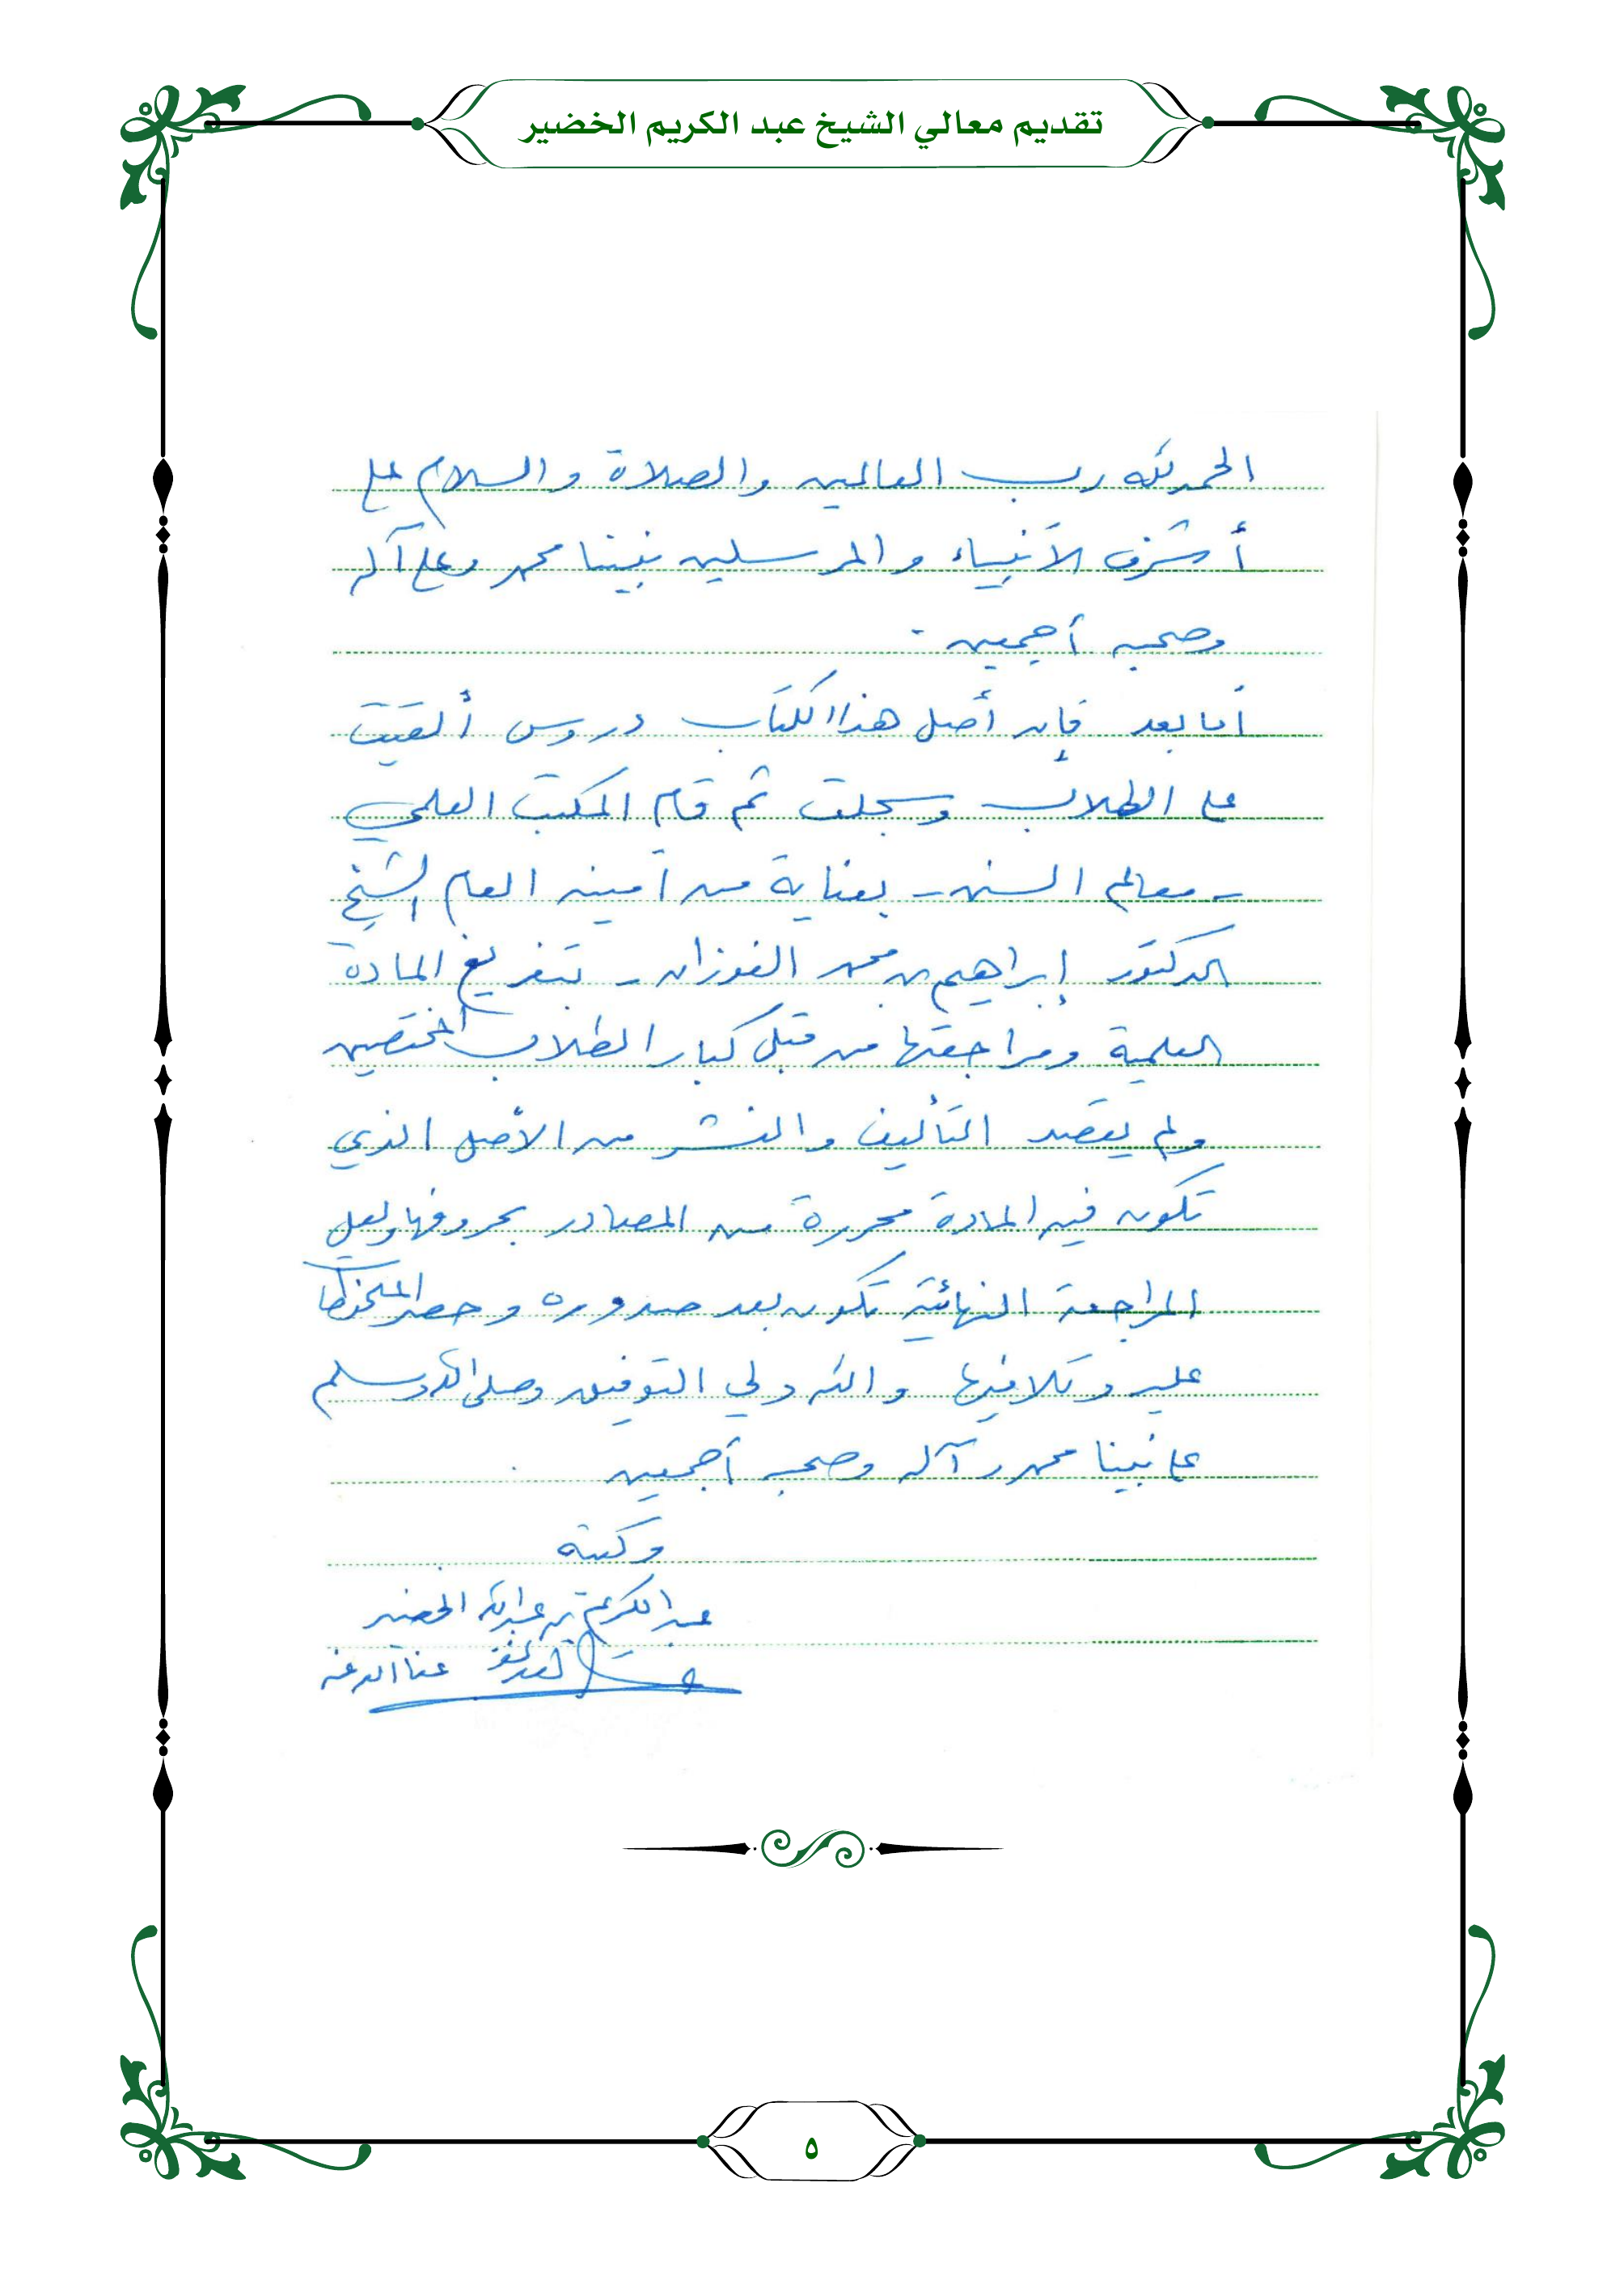 تقديم معالي الشيخ عبد الكريم الخضير
الحمد لله رب العالمين والصلاة والسلام على
أشرف الأنبياء والمرسلين نبينا محمد وعلى آله
وصحبه أجمعين .
أما بعد فإن أصل هذا الكتاب دروس ألقيت
على الطلاب وسجلت ثم قام المكتب العلمي
- معالم السنن - بعناية من أمينه العام الشيخ
الدكتور إبراهيم بن محمد الفوزان - بتفريغ المادة
العلمية ومراجعتها من قبل كبار الطلاب المختصين
ولم يقصد التأليف والنشر من الأصل الذي
تكون فيه المادة محررة من المصادر بحروفها ولعل
المراجعة النهائية تكون بعد صدوره وحصر الملحوظات
عليه وتلافيها والله ولي التوفيق وصلى الله وسلم
على نبينا محمد وآله وصحبه أجمعين .
وكتبه
عبد الكريم بن عبد الله الخضير
عفا الله عنه
٥